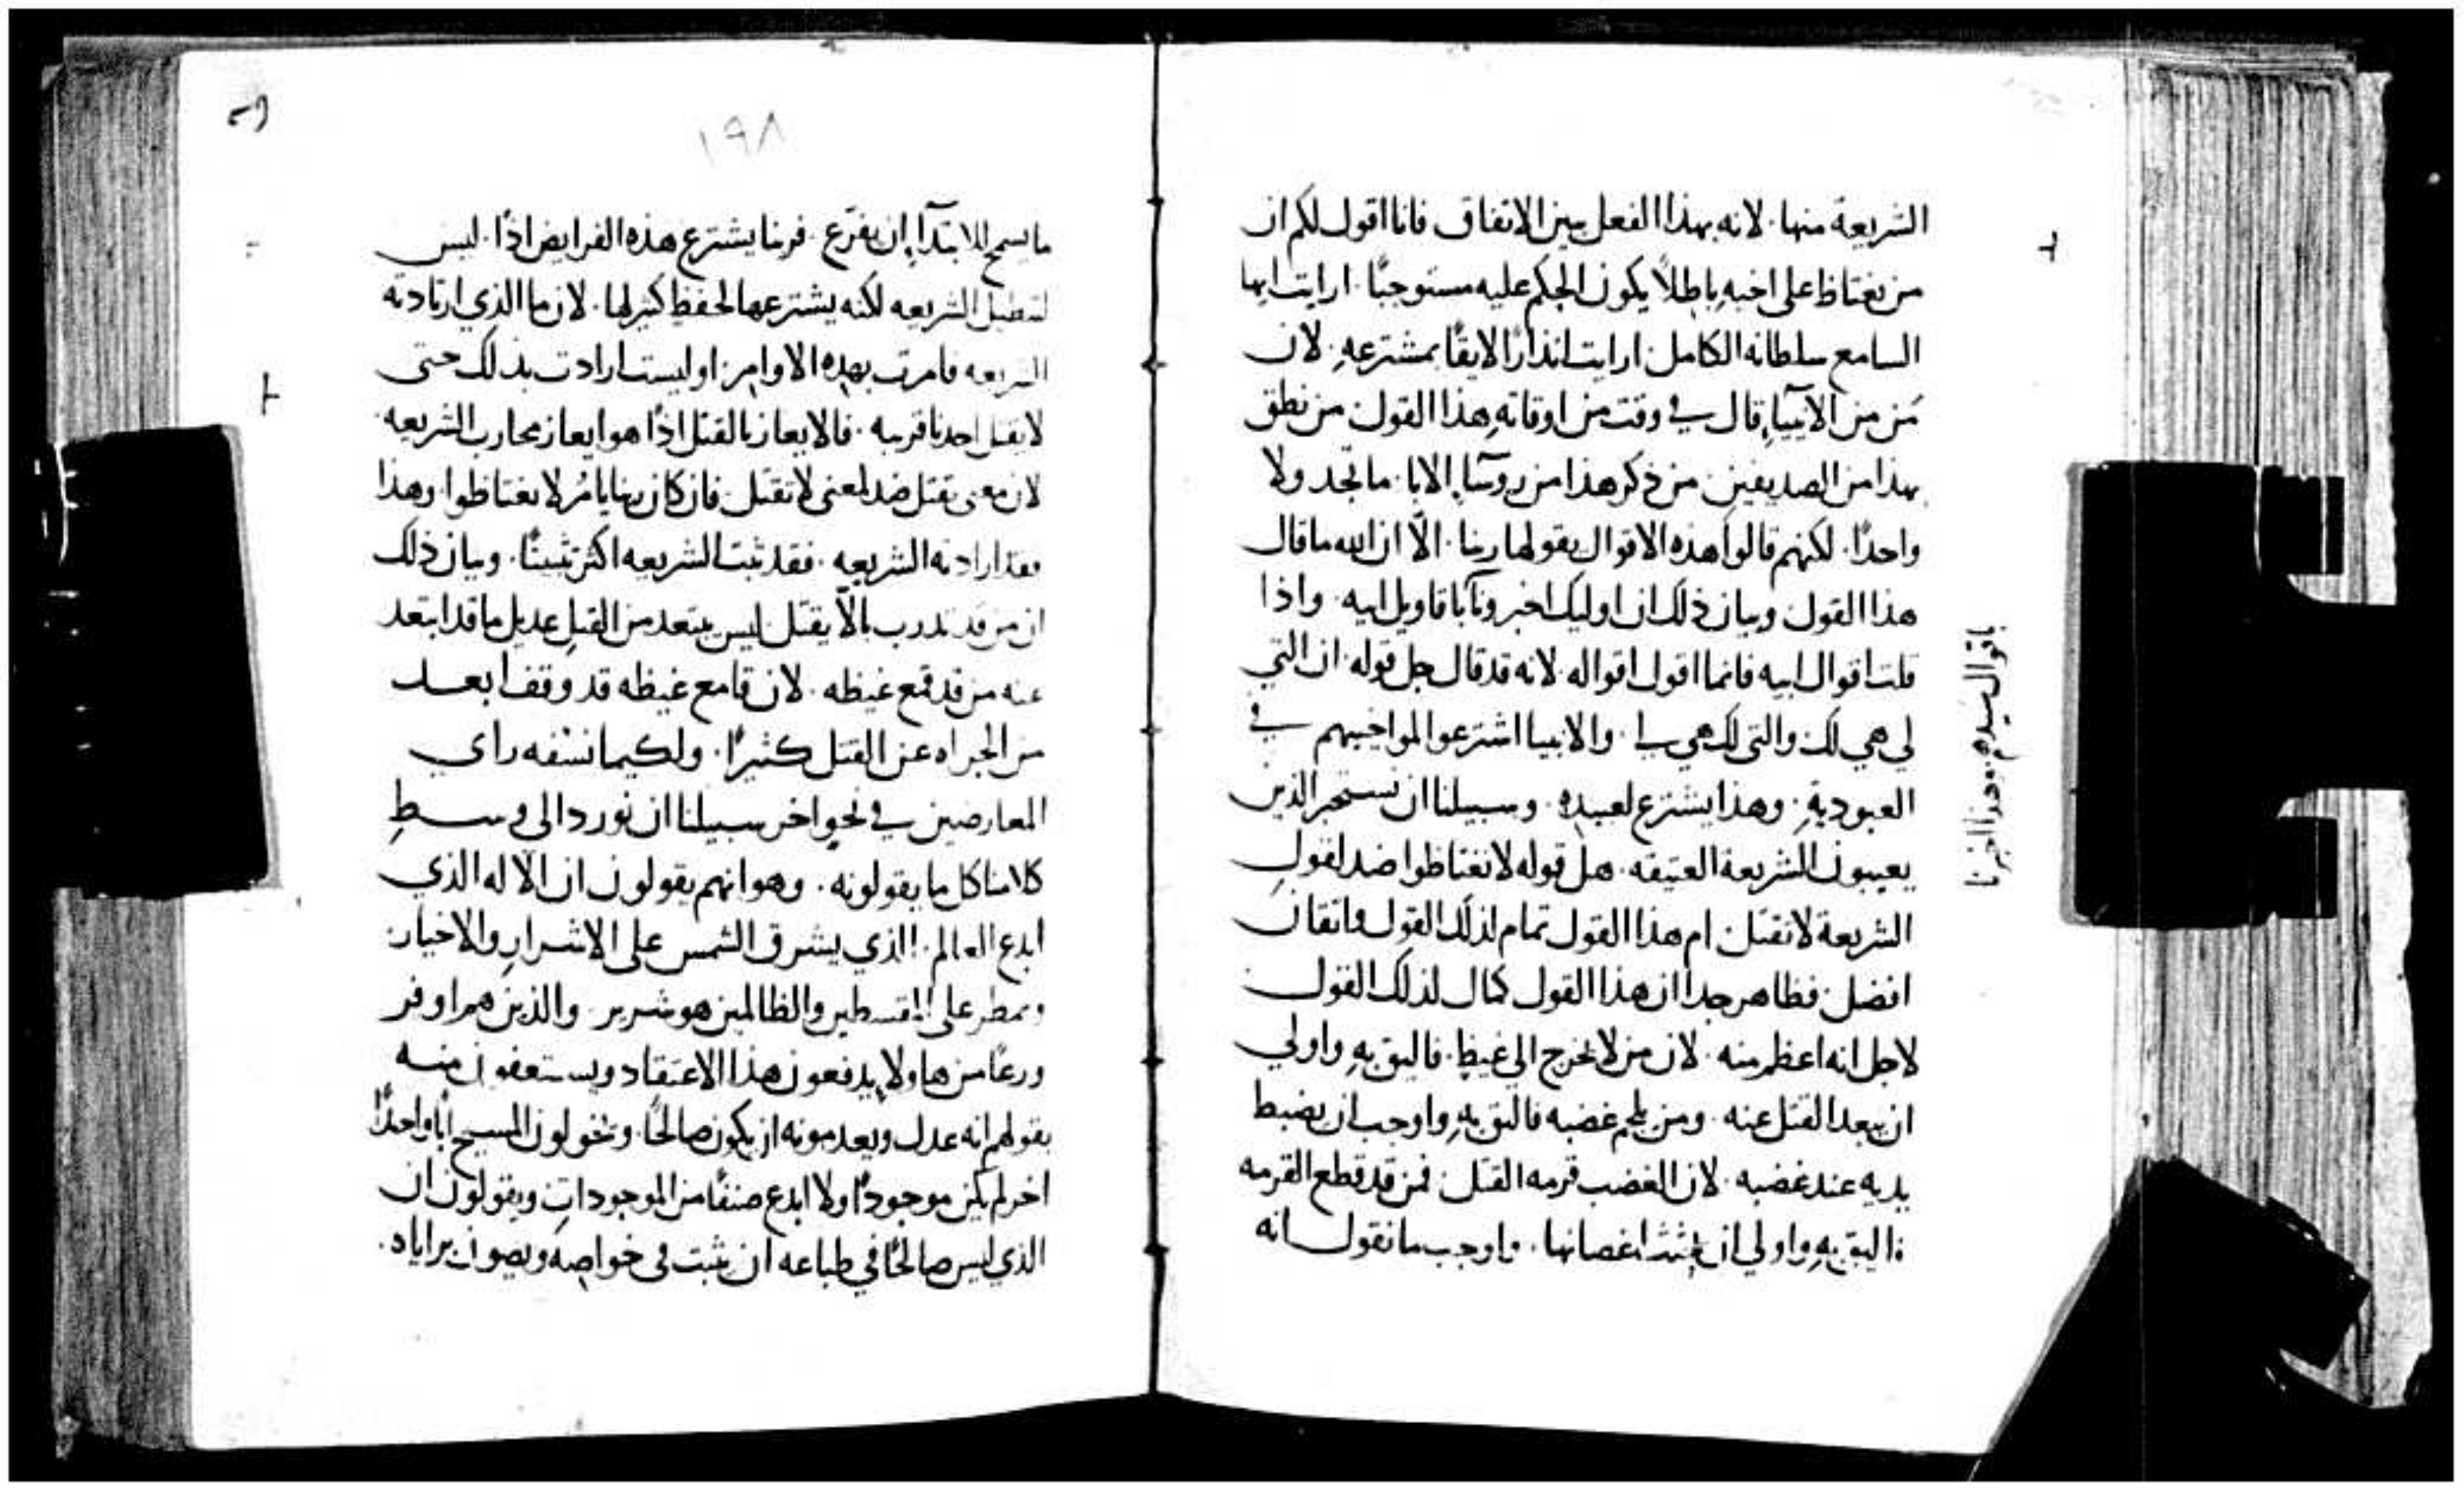 الشريعة منها. لانه بهذا الفعل يبين الاتفاق فانا اقول لكم ان
من يغتاظ على اخيه باطلاً يكون الحكم عليه مستوجبًا. ارايت ايها
السامع سلطانه الكامل. ارايت انذارًا لايقًا بمشترعهِ. لان
مَن من الانبيآءِ قال في وقت من اوقاته هذا القول من نطق
بهذا من الصديقين من ذكر هذا من روسآءِ الابا. ما تجد ولا
واحدًا. لكنهم قالوا هذه الاقوال يقولها ربنا. الّا ان الله ما قال
هذا القول وبيان ذلك ان اوليك اخبرونا باقاويل ابيه. واذا
قلت اقوال ابيه فانما اقول اقواله. لانه قد قال جل قوله. ان التي
لي هي لك والتي لك هي لي. والانبيا اشترعوا لمواخيهم في
العبودية. وهذا يشترع لعبيده. وسبيلنا ان نستخبر الذين
يعيبون الشريعة العتيقه. هل قوله لا تغتاظوا ضد لقول
الشريعة لا تقتل. ام هذا القول تمام لذلك القول واتقان
افضل. فظاهر جدا ان هذا القول كمال لذلك القول
لاجل انه اعظم منه. لان من لا يخرج الى غيظ. فاليق بهِ واولي
ان يبعد القتل عنه. ومن يلجم غضبه فاليق بهِ واوجب ان يضبط
يديه عند غضبه. لان الغضب قرمه القتل. فمن قد قطع القرمه
فاليق بهِ واولي ان يجتث اغصانها. واوجب ما نقول انه
باقوال سيدهم. وهذا اخبرنا
١٩٨
ما يسمح للابتدآءِ ان يفرّع. فربنا يشترع هذه الفرايض اذًا. ليس
لتبطيل الشريعه لكنه يشترعها لحفظ كثير لها. لان ما الذي ارتادته
الشريعه فامرت بهذه الاوامر. اوليست ارادت بذلك حتى
لا يقتل احدنا قريبه. فالايعاز بالقتل اذًا هو ايعاز محارب الشريعه
لان معنى تقتل ضد لمعنى لا تقتل. فان كان ربنا يامُر لا تغتاظوا. وهذا
فقد ارادته الشريعه. فقد ثبت الشريعه اكثر تثبيتًا. وبيان ذلك
ان من قد تدرب بالّا يقتل ليس يبتعد من القتلِ عديل ما قد ابتعد
عنه من قد قمع غيظه. لان قامع غيظه قد وقف ابعد
من الجراه عن القتل كثيرًا. ولكيما نسفه راي
المعارضين في نحوٍ اخر سبيلنا ان نورد الى وسطِ
كلامنا كل ما يقولونه. وهو انهم يقولون ان الاله الذي
ابدع العالم. الذي يشرق الشمس على الاشرارِ والاخيار.
ويمطر على المقسطين والظالمين هو شرير. والذين هم اوفر
ورعًا من هاولاءِ يدفعون هذا الاعتقاد ويستعفون منه
بقولهم انه عدل ويعدمونه ان يكون صالحًا. ويخولون المسيح ابًا واحدًا
اخر لم يكن موجودًا ولا ابدع صنفًا من الموجودات ويقولون ان
الذي ليس صالحًا في طباعه ان يثبت في خواصه ويصون براياه.